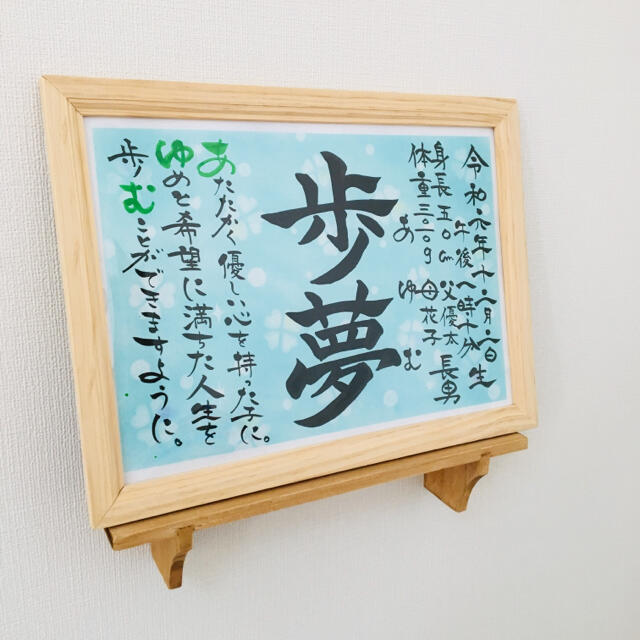 令和六年十二月一日生
午後一時十分
身長五〇cm 父優太 長男
体重三〇二〇g 母花子
あゆむ
歩夢
あたたかく優しい心を持った子に。
ゆめと希望に満ちた人生を
歩むことができますように。